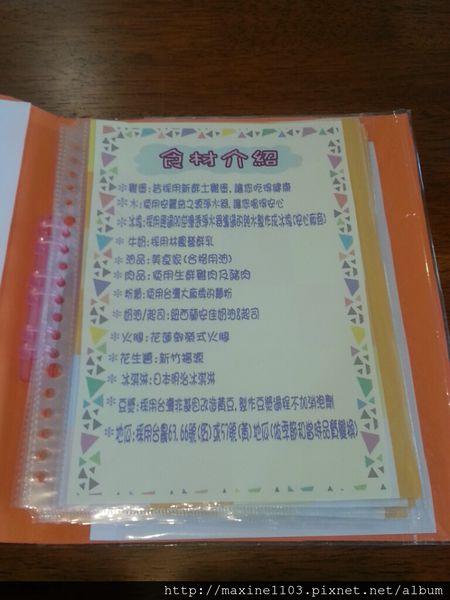 食材介紹
*雞蛋:皆採用新鮮土雞蛋,讓您吃得健康
*水:使用安麗益之源淨水器,讓您喝得安心
*冰塊:採用
*牛奶:採用林鳳營鮮乳
*油品:美食家(合格用油)
*肉品:使用生鮮雞肉及豬肉
*粉類:使用台灣大廠牌的麵粉
*奶油/起司:紐西蘭安佳奶油&起司
*火腿:花蓮御榮式火腿
*花生醬:新竹福源
*冰淇淋:日本明治冰淇淋
*豆漿:採用台灣非基因改造黃豆,製作豆漿過程不加消泡劑
*地瓜:採用台農63, 66號(紅)或57號(黃)地瓜(依季節和當時品質變換)
http://maxine1103.pixnet.net/album